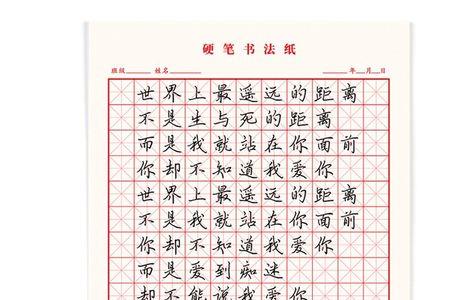 硬笔书法纸
班级 姓名 年 月 日
世界上最遥远的距离
不是生与死的距离
而是我就站在你面前
你却不知道我爱你
世界上最遥远的距离
不是我就站在你面前
你却不知道我爱你
而是爱到痴迷
却不能说我爱你